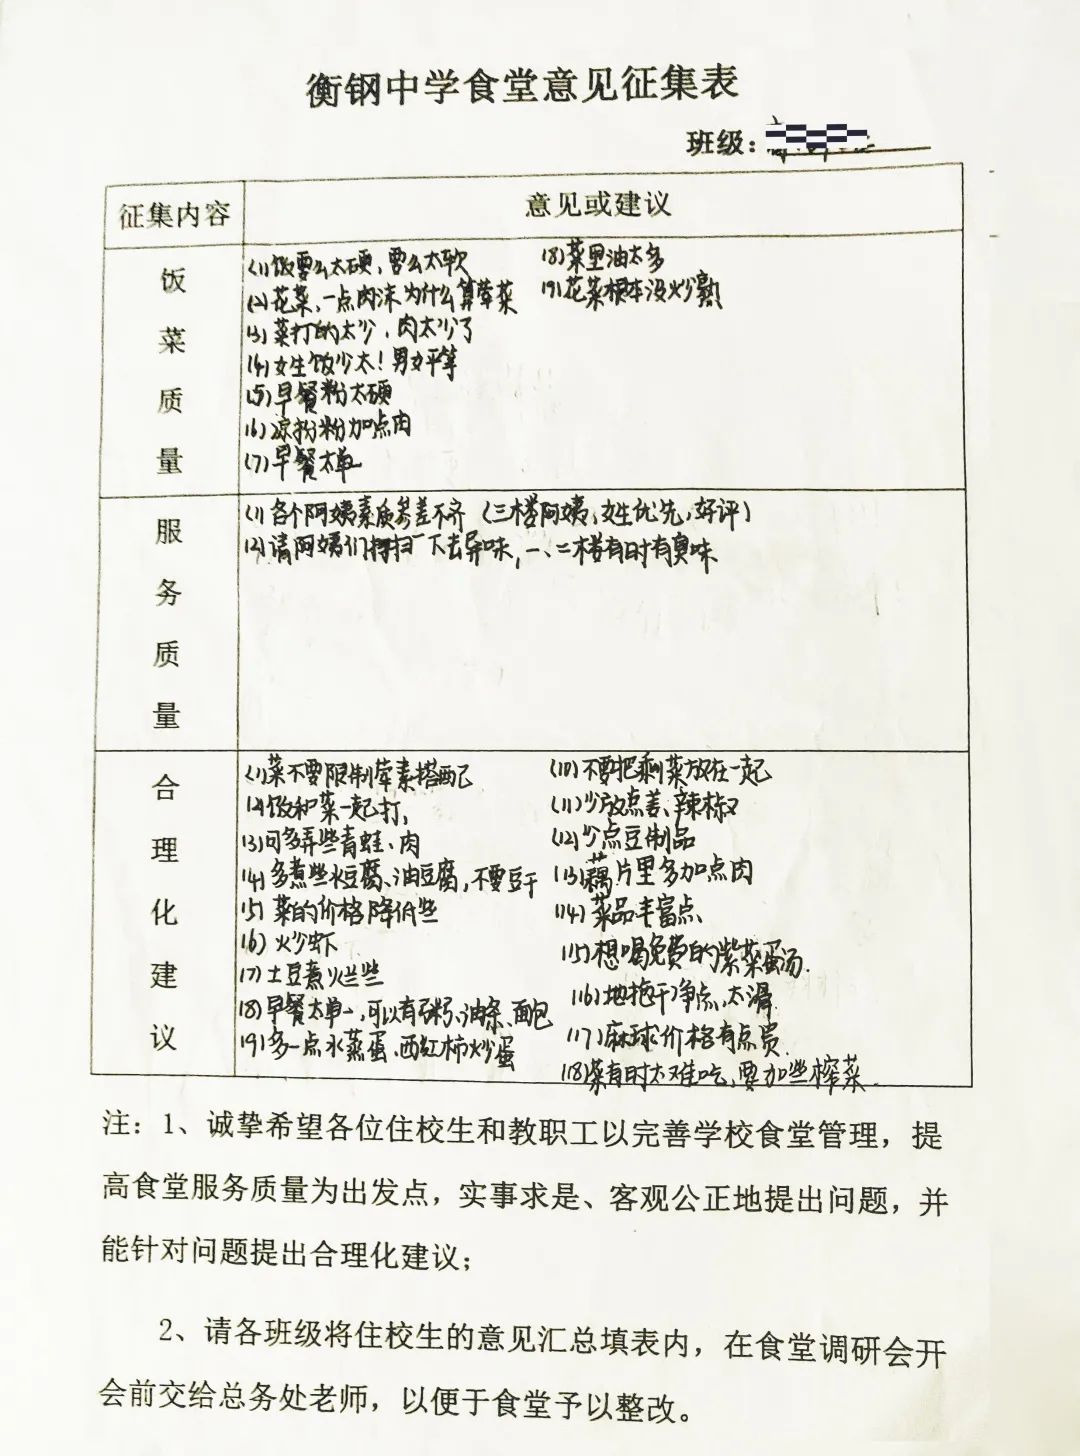 衡钢中学食堂意见征集表
班级:
征集内容
意见或建议
饭菜质量
(1)饭要么太硬、要么太软
(2)花菜、一点肉沫为什么算荤菜
(3)菜打的太少、肉太少了
(4)女生饭少太!男女平等
(5)早餐粉太硬
(6)凉拌粉加点肉
(7)早餐太单
(8)菜里油太多
(9)花菜根本没炒熟
服务质量
(1)各个阿姨素质参差不齐(三楼阿姨、女生优先,好评)
(2)请阿姨们打扫一下去异味,一、二楼有时有臭味
合理化建议
(1)菜不要限制荤素搭配
(2)饭和菜一起打,
(3)可多弄些青蛙、肉
(4)多煮些水豆腐、油豆腐,不要豆干
(5)菜的价格降低些
(6)火少虾
(7)土豆煮烂些
(8)早餐太单一,可以有粥、油条、面包
(9)多一点水蒸蛋、西红柿炒蛋
(10)不要把剩菜放在一起
(11)少放点姜、辣椒
(12)少点豆制品
(13)藕片里多加点肉
(14)菜品丰富点、
(15)想喝免费的紫菜蛋汤.
(16)地拖干净点,太滑
(17)麻球价格有点贵.
(18)菜有时太难吃,要加些榨菜.
注:1、诚挚希望各位住校生和教职工以完善学校食堂管理,提
高食堂服务质量为出发点,实事求是、客观公正地提出问题,并
能针对问题提出合理化建议;
2、请各班级将住校生的意见汇总填表内,在食堂调研会开
会前交给总务处老师,以便于食堂予以整改。